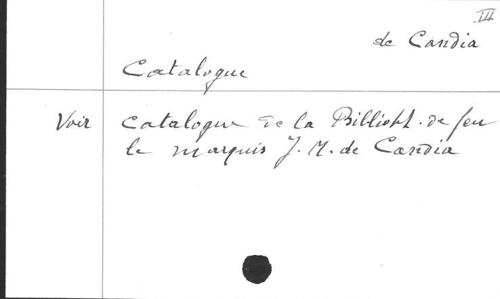 III
de Candia
Catalogue
Voir Catalogue de la Billioth. de feu
le marquis J. M. de Candia